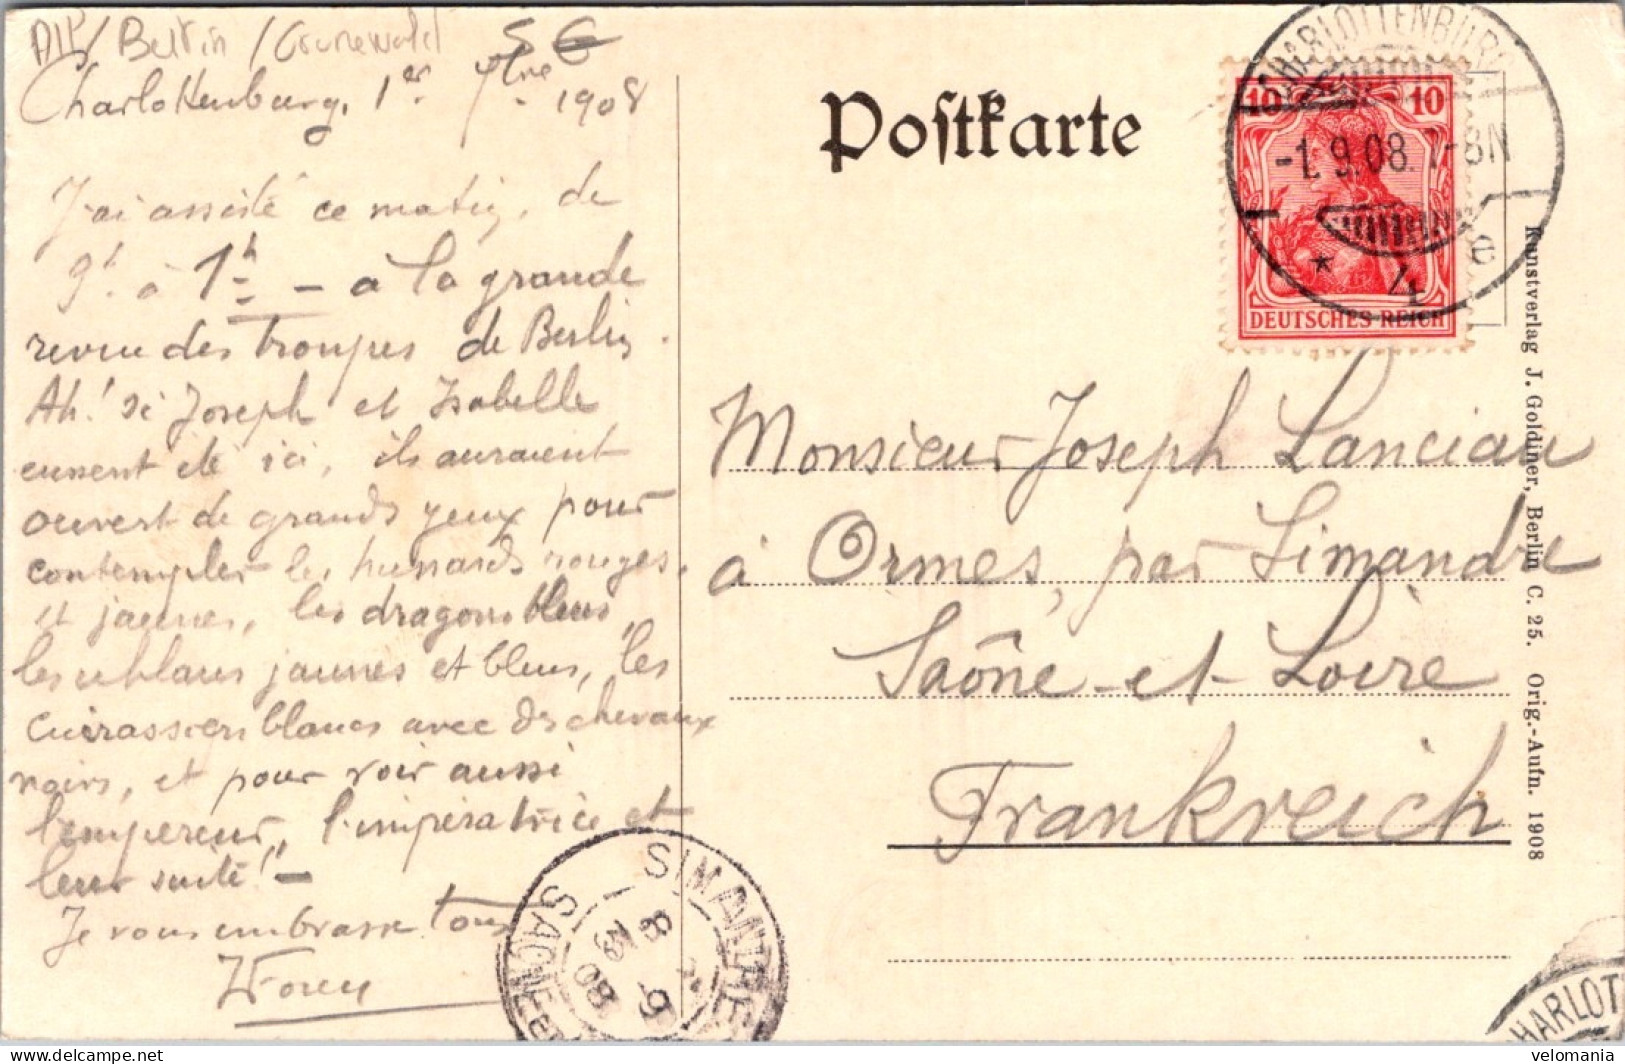 All/Berlin/Grunewald 5€
Charlottenburg, 1er 7bre 1908
J'ai assisté ce matin, de
9h à 1h — à la grande
revue des troupes de Berlin.
Ah! si Joseph et Isabelle
eussent été ici, ils auraient
ouvert de grands yeux pour
contempler les hussards rouges,
et jaunes, les dragons bleus,
les uhlans jaunes et bleus, les
cuirassiers blancs avec des chevaux
noirs, et pour voir aussi
l'empereur, l'impératrice et
leur suite! —
Je vous embrasse tous
Postkarte
10 10
DEUTSCHES REICH
CHARLOTTENBURG
-1.9.08.7-8N
* 4 e
Monsieur Joseph Lanciau
à Ormes, par Simandre
Saône-et-Loire
Frankreich
Kunstverlag J. Goldiner, Berlin C. 25. Orig.-Aufn. 1908
SIMANDRE
SAONE
08
CHARLOT
www.delcampe.net
velomania